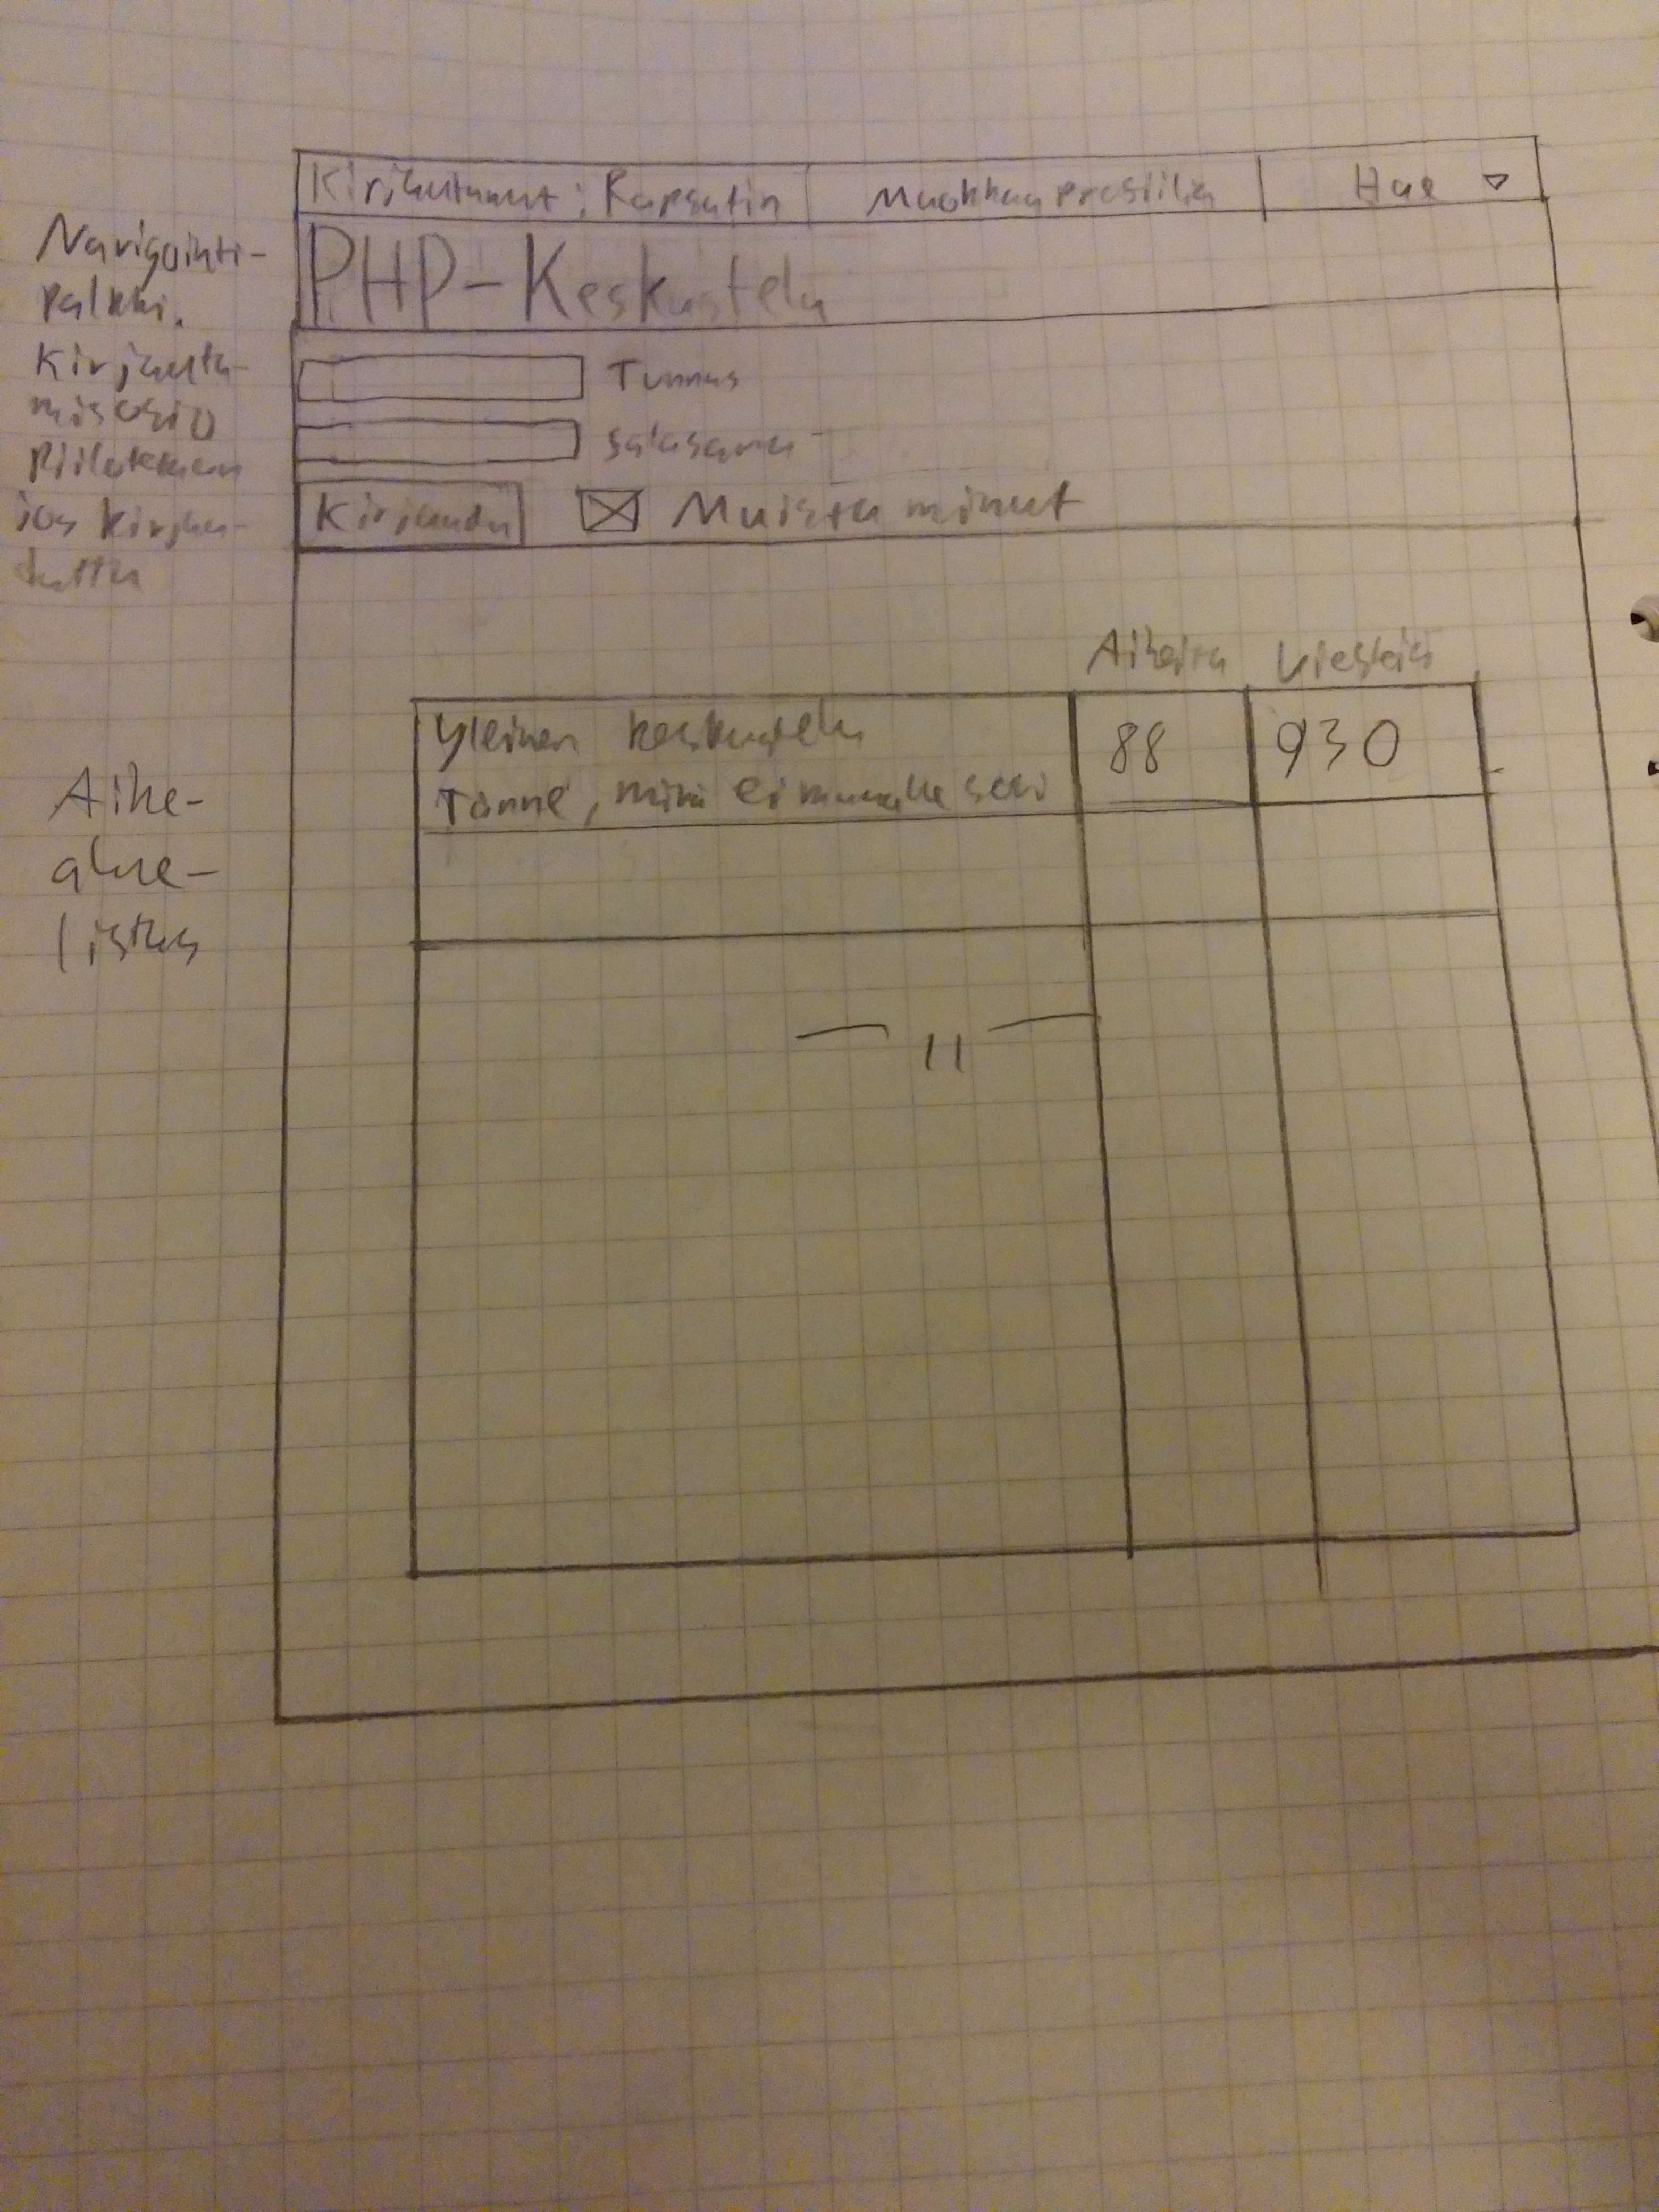 Kirjautunut: Rapsutin
Muokkaa profiilia
Hae
Navigointi-
palkki.
PHP-Keskustelu
Kirjauta-
misosio
piilotetaan
jos kirjau-
duttu
Tunnus
salasana
Kirjaudu
Muista minut
Aiheita
Viestejä
Aihe-
alue-
listaus
Yleinen keskustelu
88
930
Tänne, mikä ei muualle sovi
— 11 —